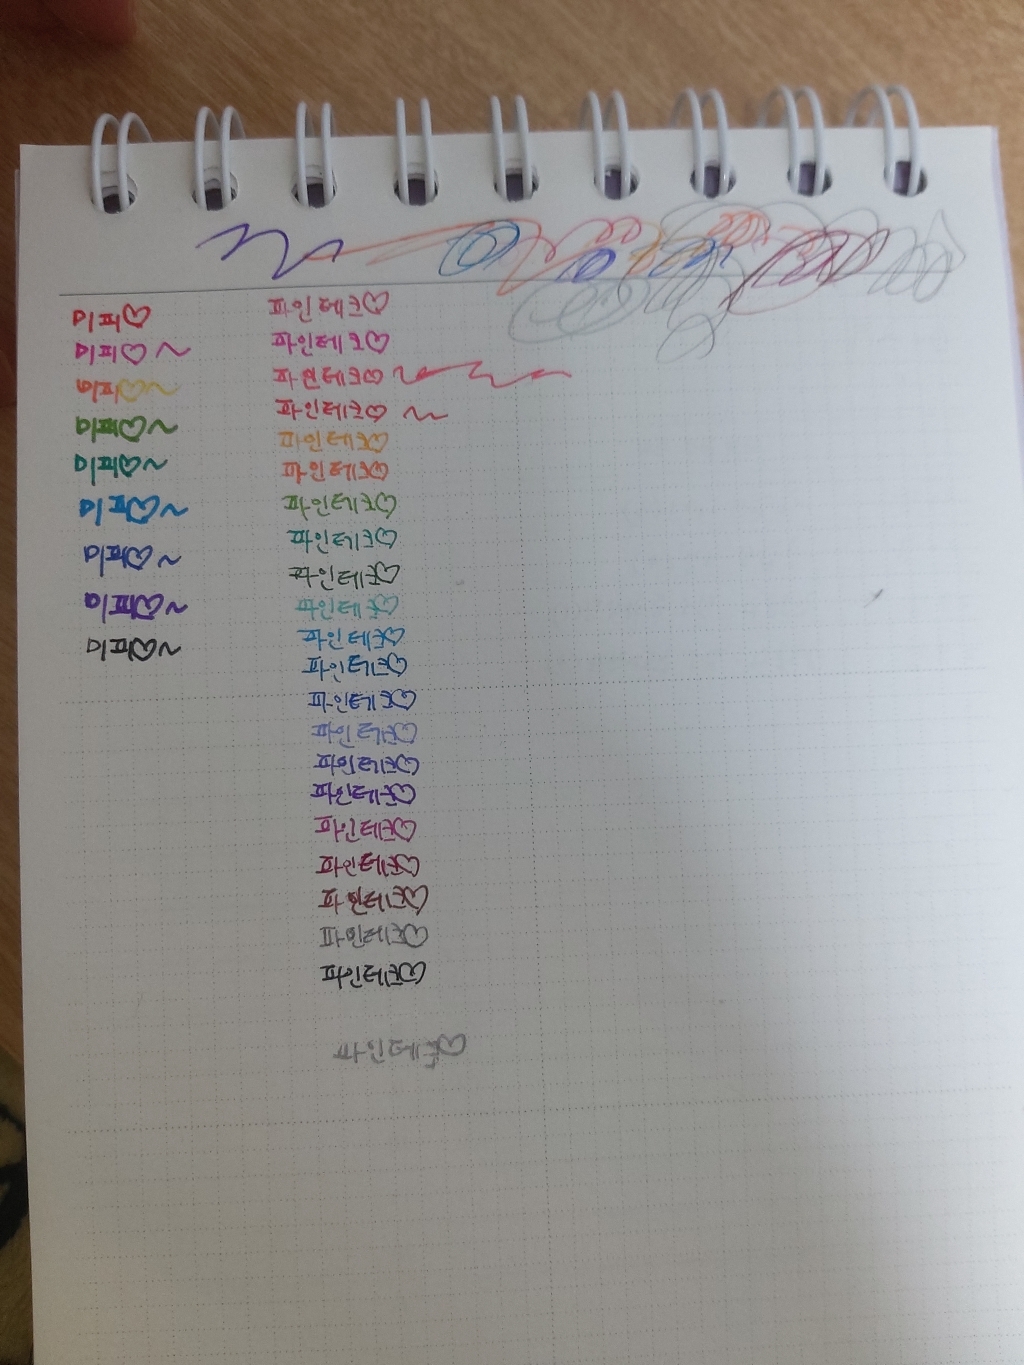 미피♡
미피♡~
미피♡~
미피♡~
미피♡~
미피♡~
미피♡~
미피♡~
미피♡~
파인테크♡
파인테크♡
파인테크♡
파인테크♡~
파인테크♡
파인테크♡
파인테크♡
파인테크♡
파인테크♡
파인테크♡
파인테크♡
파인테크♡
파인테크♡
파인테크♡
파인테크♡
파인테크♡
파인테크♡
파인테크♡
파인테크♡
파인테크♡
파인테크♡
파인테크♡